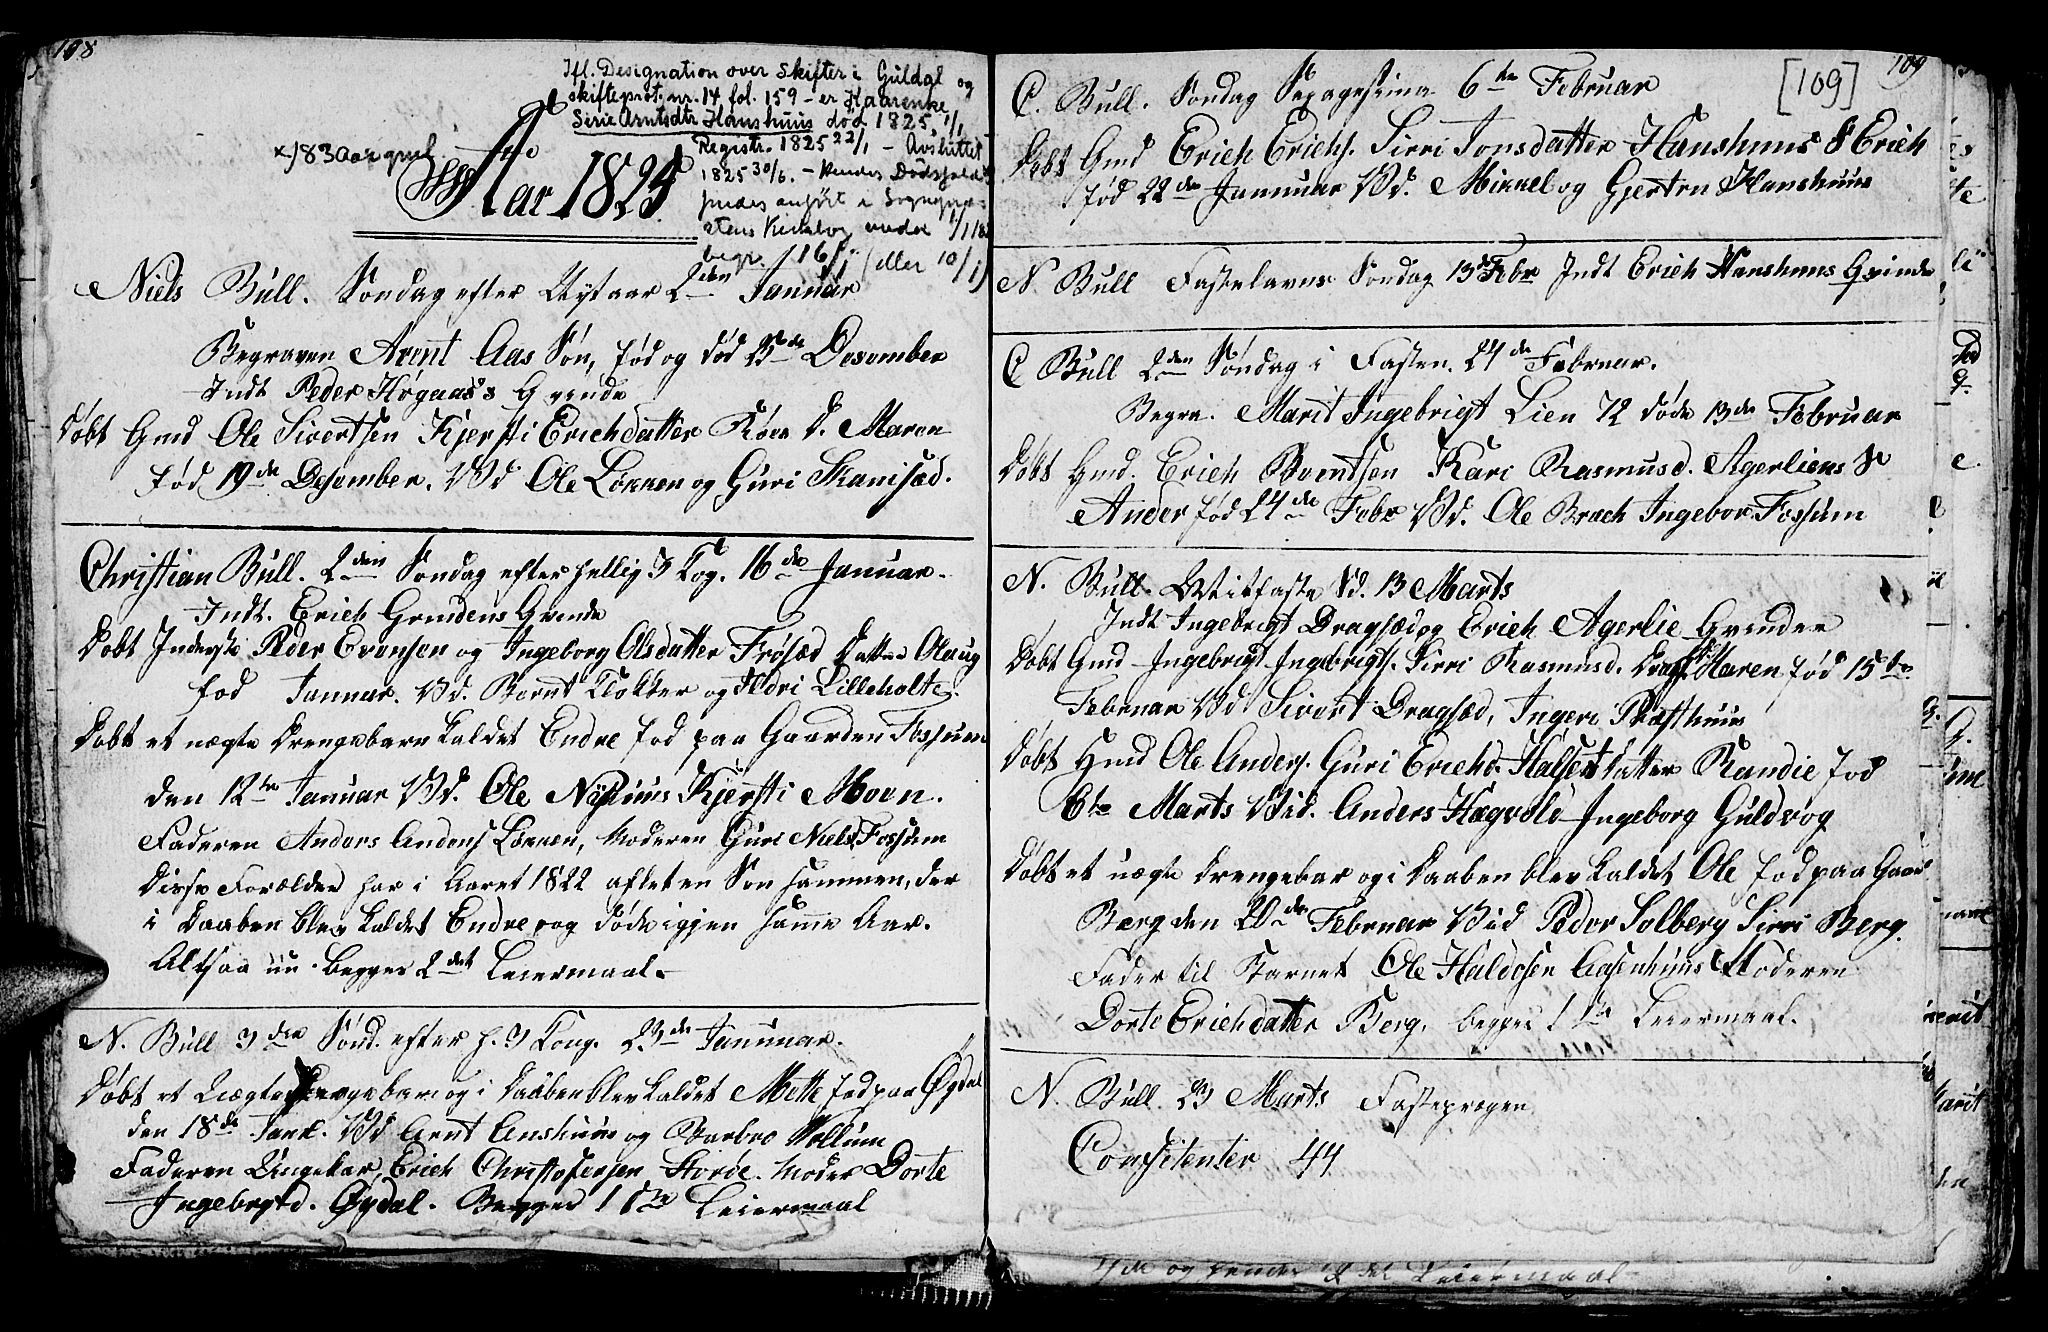 108
Ifl. Designation over skifter i Guldal og
skifteprot. nr. 14 fol. 159 – er Kaarenke
Sirie Arntsdtr Hanshuus død 1825, 1/1
x) 83 Aar gml.
Registr. 1825 22/1 – Avsluttet
1825 30/6. – Hendes Dødsfald
findes anført i Sognepræ-
stens Kirkebog under 1/1 182
begr. 16/1 (eller 10/1)
Aar 1825
Niels Bull. Søndag efter Nytaar 2den Januar
Begraven Arent Aas Søn, fød og død 13de Desember
Indt. Peder Hogaas's Qvinde
Døbt Gmd Ole Sivertsen Kjersti Erichdatter D. Maren
fød 19de Desember. Vd Ole Løkken og Guri Skarisæd.
Christian Bull. 2den Søndag efter hellig 3 Kog. 16de Januar.
Indt. Erich Grindens Qvinde
Døbt Inderste Peder Evensen og Ingeborg Olsdatter Frøsæd Datter Olaug
fød Januar. Vd. Bernt Klokker og Ildri Lilleholte.
Døbt et uægte Drengebarn kaldet Endre fød paa Gaarden Fossum
den 12te Januar Vd. Ole Nyhuus Kjersti Moen.
Faderen Anders Anders Løkken, Moderen Guri Niels. Fossum
Disse Forældre har i Aaret 1822 aflet en Søn sammen, der
i Daaben blev kaldet Endre og døde igjen samme Aar.
Altsaa nu begges 2det Leiermaal.
N. Bull 3die Sønd. efter h. 3 Kong. 23de Januar.
Døbt et Uægte Pigebarn og i Daaben blev kaldet Mette fød paa Øydal
den 18de Janr. Vd Arnt Anshuus og Barbro Sollum
Faderen Ungekar Erich Christofersen Storøe. Moder Dorte
Ingebrgtd. Øydal. Begges 1ste Leiermaal
[109] 109
C. Bull. Søndag Sexagesima 6te Februar
Døbt Gmd Erich Erichs. Sirri Jonsdatter Hanshuus S Erich
fød 22de Januar Vd. Mikkel og Gjertru Hanshuus
N. Bull Fastelavns Søndag 13de Febr Indt Erich Hanshuus Qvinde
C Bull 2den Søndag i Fasten. 24de Februar.
Begra. Marit Ingebrigt Lien 72 døde 13de Februar
Døbt Gmd. Erich Berntsen Kari Rasmusd. Agerliens S
Ander fød 24de Febr Vd. Ole Brach Ingebor Fossum
N. Bull. Mitfaste Sd. 13 Marts
Indt Ingebrigt Dragsæd og Erich Agerlie Qvinder
Døbt Gmd Ingebrigt Ingebrigts. Sirri Rasmusd. Drags. Maren fød 15te
Februar Vd Sivert Dragsæd, Ingeri Præsthuus
Døbt Gmd Ole Anders. Guri Erichd. Halset Datter Randie fød
6te Marts Vid. Anders Hægvold Ingeborg Guldvog
Døbt et uægte Drengebar og i Daaben blev kaldet Ole fød paa Gaar
Berg den 20de Februar Vid Peder Solberg Sirri Berg.
Fader til Barnet Ole Haldosen Aasenhuus Moderen
Dorte Erichdatter Berg, begges 1te Leiermaal.
N. Bull. 23 Marts Fasteprægen
Confitenter 44
2det Leiermaal